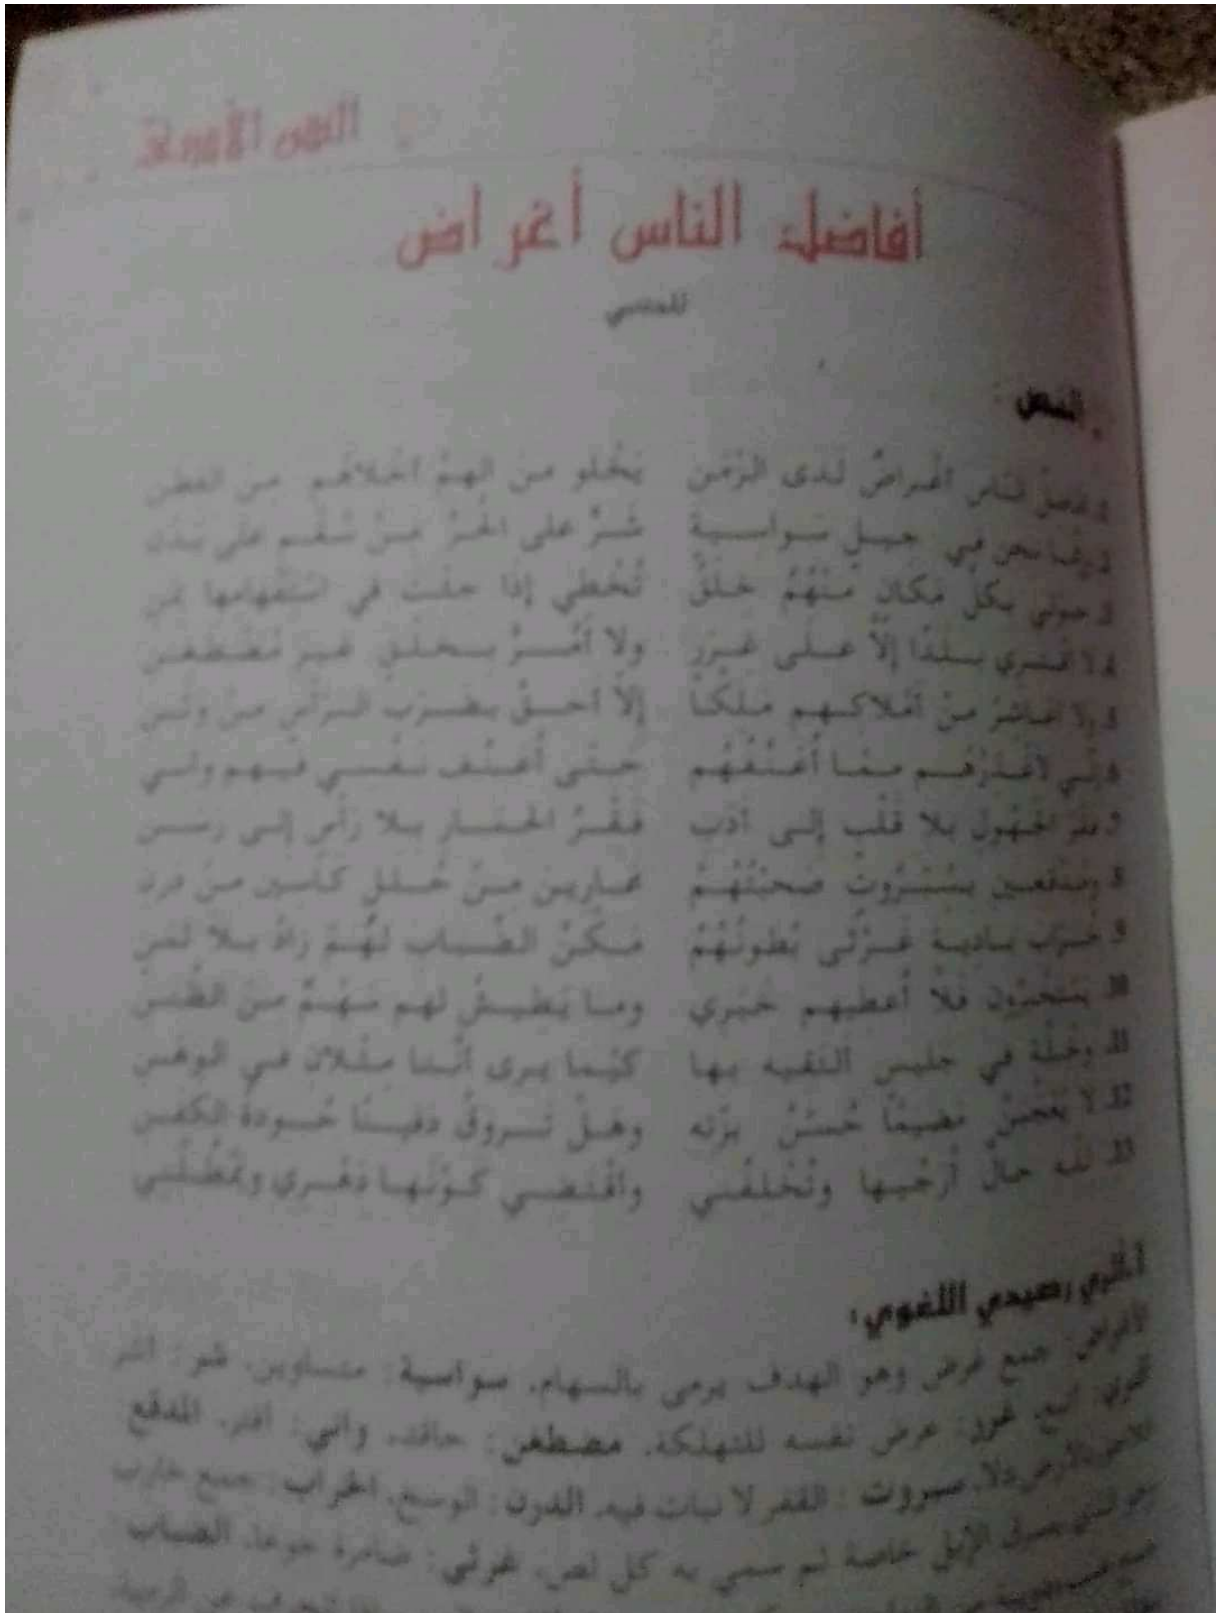 النص الأدبي
أفاضل الناس أغراض
للمتنبي
النص :
الناس أغراضٌ لَدَى الزَّمَنِ يَخْلُو مِنَ الهمِّ أخْلاهُم مِنَ الفِطَنِ
2 نحن في جيلٍ سَواسِيةٍ شَرٍّ على الحُرِّ مِنْ سُقْمٍ على بَدَنِ
3 حولي بكلِّ مَكانٍ مِنْهُمُ خِلَقٌ تُخْطِي إذا جئتَ في اسْتِفْهامِها بمَنِ
4 لا أقتري بَلَدًا إلاَّ عَلى غَرَرٍ ولا أمُرُّ بِخَلْقٍ غيرِ مُضْطَغِنِ
5 ولا أعاشرُ مِنْ أمْلاكِهِم مَلِكًا إلاَّ أحقَّ بِضَرْبِ الرَّأسِ مِنْ وَثَنِ
6 إنّي لأعْذِرُهُم مِمّا أُعَنِّفُهُم حتّى أُعنِّفَ نَفْسي فيهم وأني
7 فقر الجَهُولِ بلا قَلْبٍ إلى أدَبٍ فَقْرُ الحِمارِ بلا رأسٍ إلى رَسَنِ
8 ومُدْقعينَ بِسُبْرُوتٍ صَحِبْتُهُمُ عارينَ مِنْ حُلَلٍ كاسينَ مِنْ دَرَنِ
9 خُرَّابِ بادِيةٍ غَرْثَى بُطُونُهُمُ مَكْنُ الضِّبابِ لَهُمْ زادٌ بِلا ثَمَنِ
10 يستخبرون فَلا أُعطيهم خَبَري وما يَطيشُ لهم سَهْمٌ مِنَ الظِّنَنِ
11 وخَلَّةٍ في جليسٍ ألتقيه بها كَيْما يرى أنّنا مِثْلانِ في الوَهَنِ
12 لا يُعْجِبَنَّ مَضيمًا حُسْنُ بِزَّتِه وهلْ تَروقُ دفينًا جُودةُ الكفَنِ
13 لله حالٌ أُرَجِّيها وتُخْلِفُني وأقْتَضي كَوْنَها دَهْري ويَمْطُلُني
أثري رصيدي اللغوي :
الأغراض: جمع غرض وهو الهدف يرمى بالسهام. سواسية: متساوين. شر: أشر
أقتري: أتتبع. غرر: عرض نفسه للتهلكة. مضطغن: حاقد. وأني: أفتر. المدقع
سبروت: القفر لا نبات فيه. الدرن: الوسخ. الخراب: جمع خارب
الإبل خاصة ثم سمي به كل لص. غرثى: ضامرة جوعا. الضباب